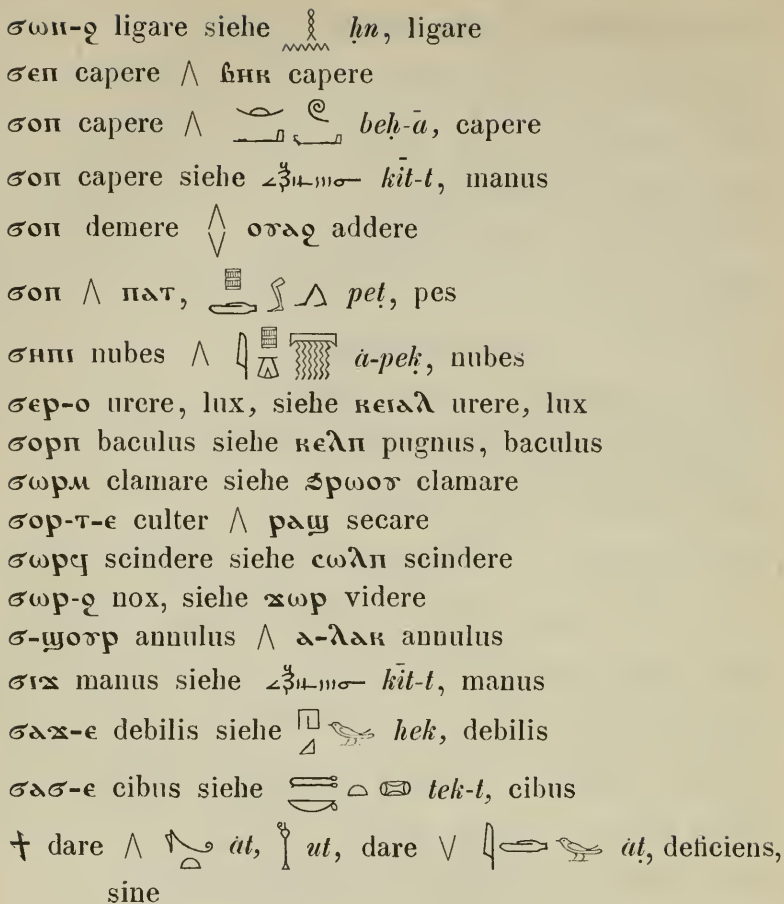 ϭⲱⲛ-ϩ ligare siehe 𓎛𓈖 ḥn, ligare
ϭⲉⲡ capere ⋀ ⲃⲏⲕ capere
ϭⲟⲡ capere ⋀ beḥ-ā, capere
ϭⲟⲡ capere siehe kīt-t, manus
ϭⲟⲡ demere ⋀⋁ ⲟⲩⲁϩ addere
ϭⲟⲡ ⋀ ⲡⲁⲧ, peṭ, pes
ϭⲏⲡⲓ nubes ⋀ ȧ-peḳ, nubes
ϭⲉⲣ-ⲟ urere, lux, siehe ⲕⲉⲓⲁⲗ urere, lux
ϭⲟⲣⲡ baculus siehe ⲕⲉⲗⲡ pugnus, baculus
ϭⲱⲣⲙ clamare siehe ϧⲣⲱⲟⲩ clamare
ϭⲟⲣ-ⲧ-ⲉ culter ⋀ ⲣⲁϣ secare
ϭⲱⲣϥ scindere siehe ⲥⲱⲗⲡ scindere
ϭⲱⲣ-ϩ nox, siehe ϫⲱⲣ videre
ϭ-ϣⲟⲩⲣ annulus ⋀ ⲁ-ⲗⲁⲕ annulus
ϭⲓϫ manus siehe kīt-t, manus
ϭⲁϫ-ⲉ debilis siehe 𓉔𓈎𓅪 hek, debilis
ϭⲁϭ-ⲉ cibus siehe tek-t, cibus
ϯ dare ⋀ ȧt, ut, dare ⋁ 𓇋𓂧𓅪 ȧṭ, deficiens,
sine